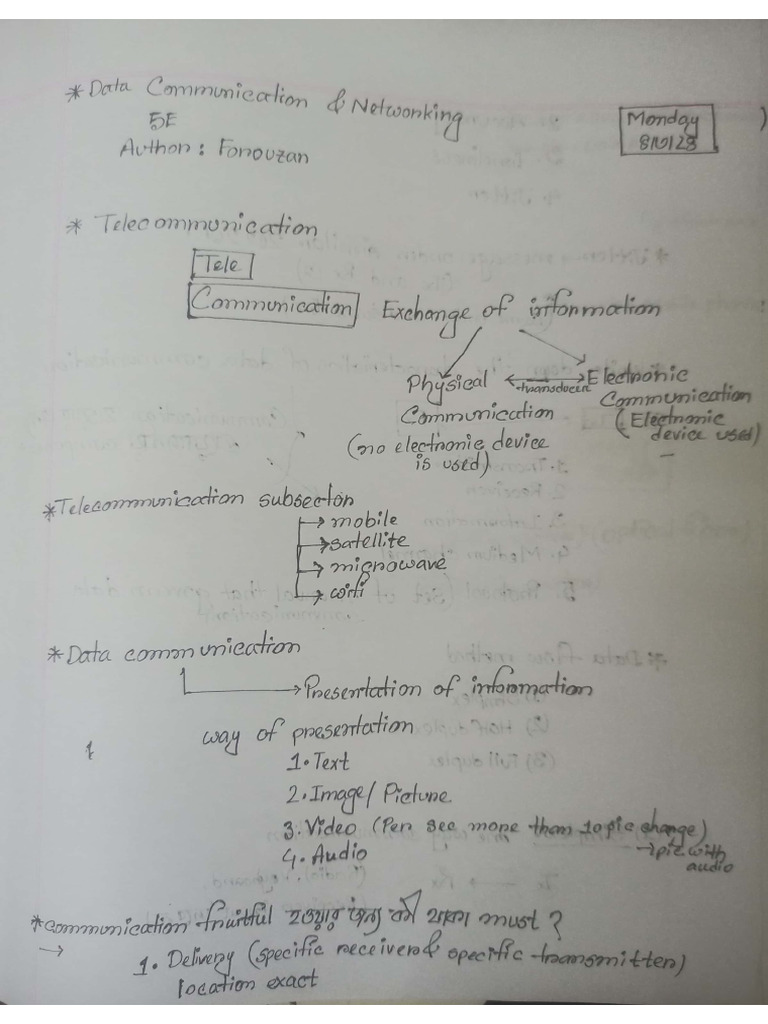 * Data Communication & Networking
5E
Author : Forouzan
Monday
* Telecommunication
Tele
Communication Exchange of information
Physical Communication
(no electronic device is used)
transducer
Electronic Communication
(Electronic device used)
* Telecommunication subsector
→ mobile
→ satellite
→ microwave
→ wifi
* Data communication
→ Presentation of information
way of presentation
1. Text
2. Image/ Picture
3. Video (Per sec more than 10 pic change)
→ pic with audio
4. Audio
* communication fruitful হওয়ার জন্য কী থাকা must ?
→ 1. Delivery (specific receiver & specific transmitter)
location exact